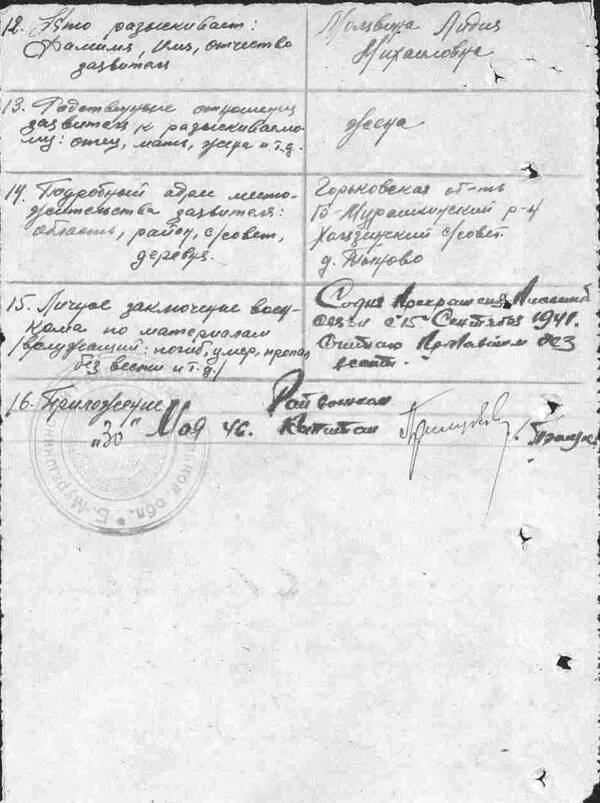 12. Кто разыскивает:
Фамилия, имя, отчество
заявителя
Лидия
Михайловна
13. Родственные отношения
заявителя к разыскиваемо-
му: отец, мать, жена и т.д.
жена
14. Подробный адрес место-
жительства заявителя:
область, район, с/совет,
деревня.
Горьковская об-ть
Б-Мурашкинский р-н
с/совет
д.
15. Личное заключение воен-
кома по материалам
погиб, умер, пропал
без вести и т.д./
Со дня прекращения письмен.
связи с 15 Сентября 1941.
Считаю пропавшим без
вести.
16. Приложение
Райвоенком
"30" Мая 46. Капитан